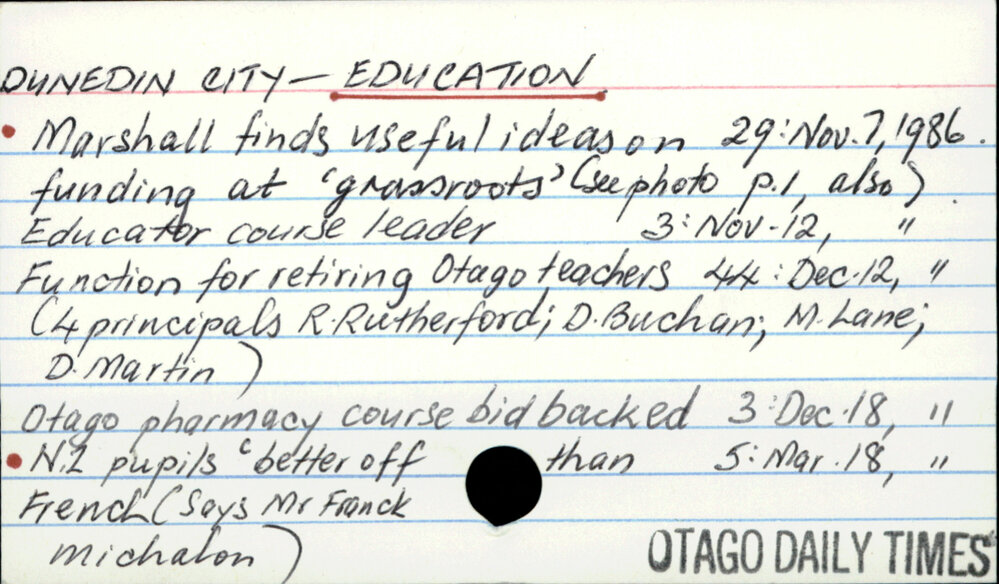 DUNEDIN CITY — EDUCATION
• Marshall finds useful ideas on 29: Nov. 7, 1986.
funding at 'grassroots' (see photo p.1, also).
Educator course leader 3: Nov. 12, "
Function for retiring Otago teachers 44: Dec. 12, "
(4 principals R. Rutherford; D. Buchan; M. Lane;
D. Martin)
Otago pharmacy course bid backed 3: Dec. 18, "
• N.Z pupils 'better off than 5: Mar. 18, "
French (Says Mr Franck
Michalon)
OTAGO DAILY TIMES